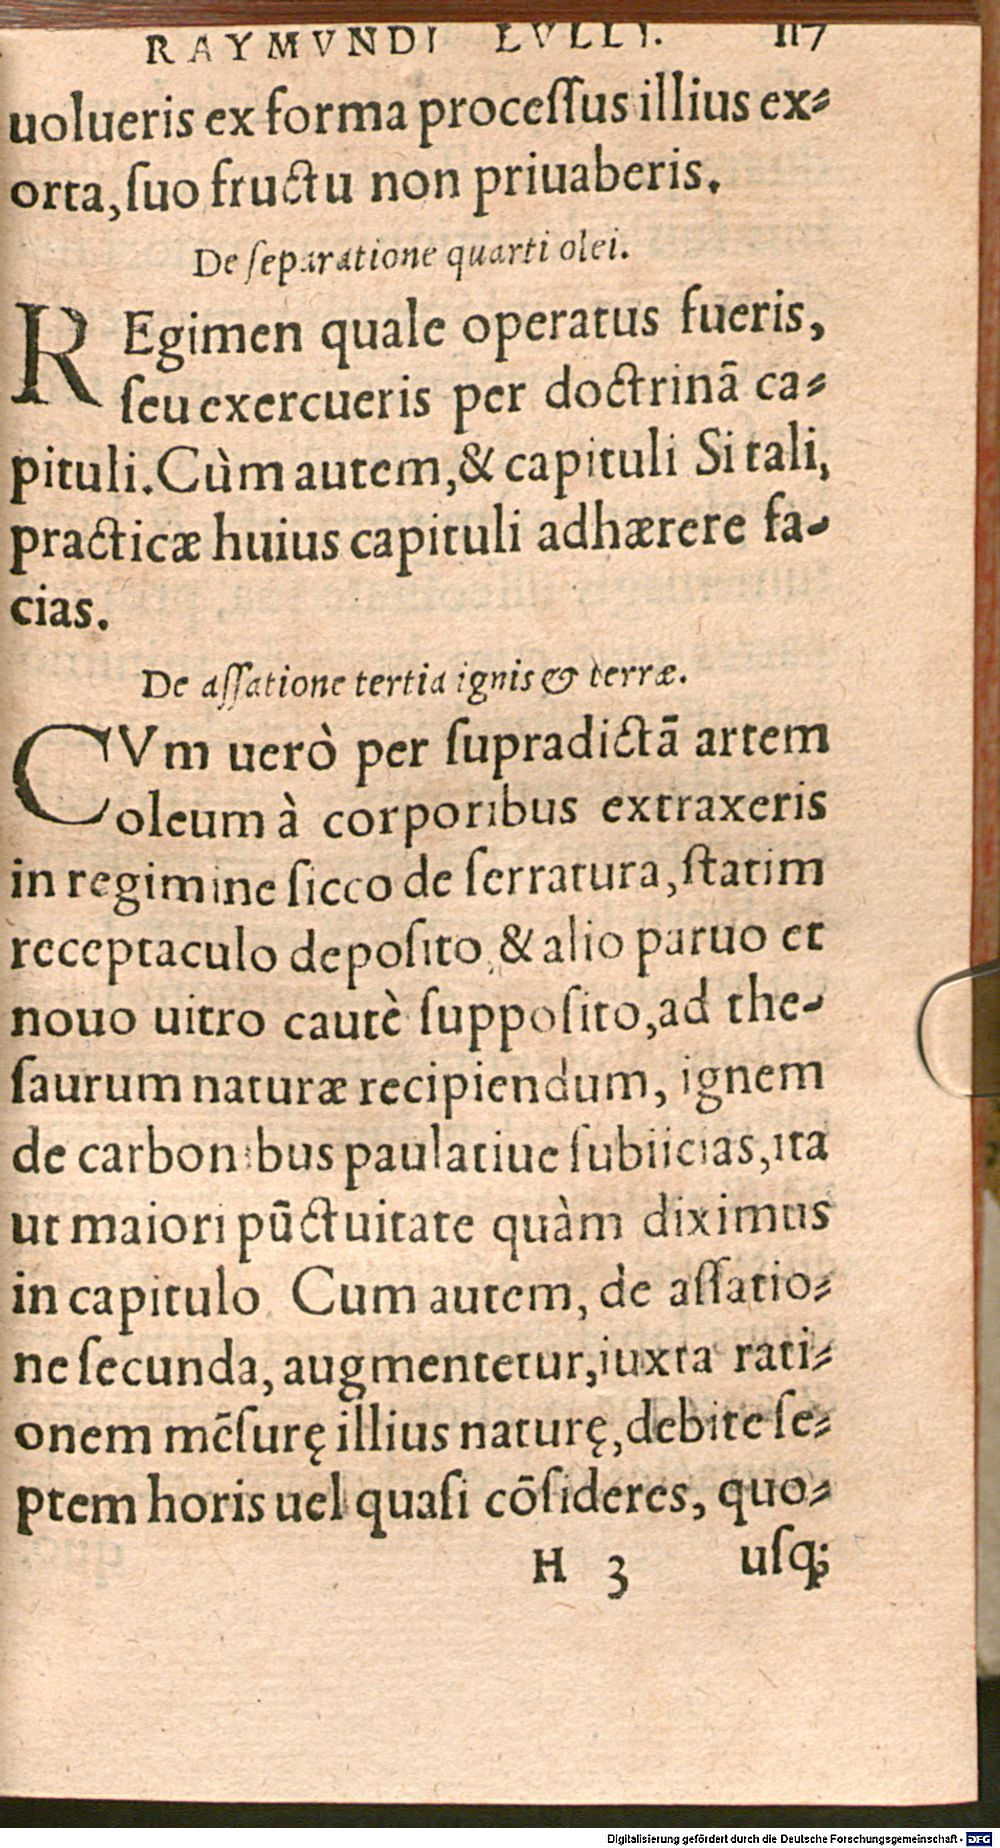 RAYMVNDI LVLLI. 117
uolueris ex forma proceſſus illius ex⸗
orta, ſuo fructu non priuaberis.
De ſeparatione quarti olei.
REgimen quale operatus fueris,
ſeu exercueris per doctrinã ca⸗
pituli. Cùm autem, & capituli Si tali,
practicæ huius capituli adhærere fa⸗
cias.
De aſſatione tertia ignis & terræ.
CVm uerò per ſupradictã artem
oleum à corporibus extraxeris
in regimine ſicco de ſerratura, ſtatim
receptaculo depoſito, & alio paruo et
nouo uitro cautè ſuppoſito, ad the⸗
ſaurum naturæ recipiendum, ignem
de carbonibus paulatiue ſubiicias, ita
ut maiori pũctuitate quàm diximus
in capitulo Cum autem, de aſſatio⸗
ne ſecunda, augmentetur, iuxta rati⸗
onem mẽſurę illius naturę, debite ſe⸗
ptem horis uel quaſi cõſideres, quo⸗
H 3 uſq;
Digitalisierung gefördert durch die Deutsche Forschungsgemeinschaft - DFG